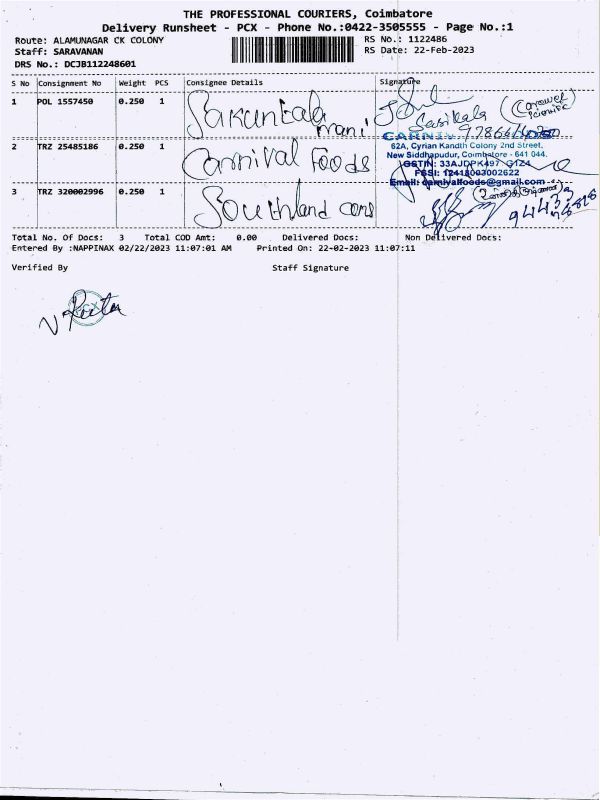 THE PROFESSIONAL COURIERS, Coimbatore
Delivery Runsheet - PCX - Phone No.:0422-3505555 - Page No.:1
Route: ALAMUNAGAR CK COLONY
RS No.: 1122486
Staff: SARAVANAN
RS Date: 22-Feb-2023
DRS No.: DCJB112248601
S No Consignment No Weight PCS Consignee Details Signature
1 POL 1557450 0.250 1 Sakuntala
mani
Sasikala
2 TRZ 25485186 0.250 1 Carnival Foods
62A, Cyrian Kandth Colony 2nd Street,
New Siddhapudur, Coimbatore - 641 044.
FSSI: 12418003002622
Email: carnivalfoods@gmail.com
3 TRZ 320002996 0.250 1 Southland cons
Total No. Of Docs: 3 Total COD Amt: 0.00 Delivered Docs: Non Delivered Docs:
Entered By :NAPPINAX 02/22/2023 11:07:01 AM Printed On: 22-02-2023 11:07:11
Verified By Staff Signature